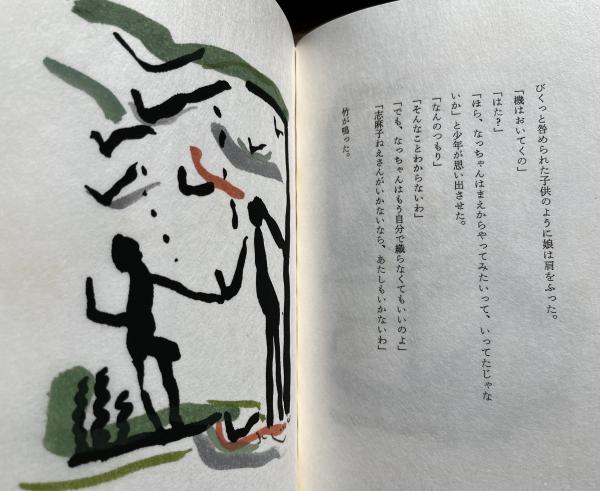 びくっと咎められた子供のように娘は肩をふった。
「機はおいてくの」
「はた?」
「ほら、なっちゃんはまえからやってみたいって、いってたじゃな
いか」と少年が思い出させた。
「なんのつもり」
「そんなことわからないわ」
「でも、なっちゃんはもう自分で織らなくてもいいのよ」
「志麻子ねえさんがいかないなら、あたしもいかないわ」
竹が鳴った。